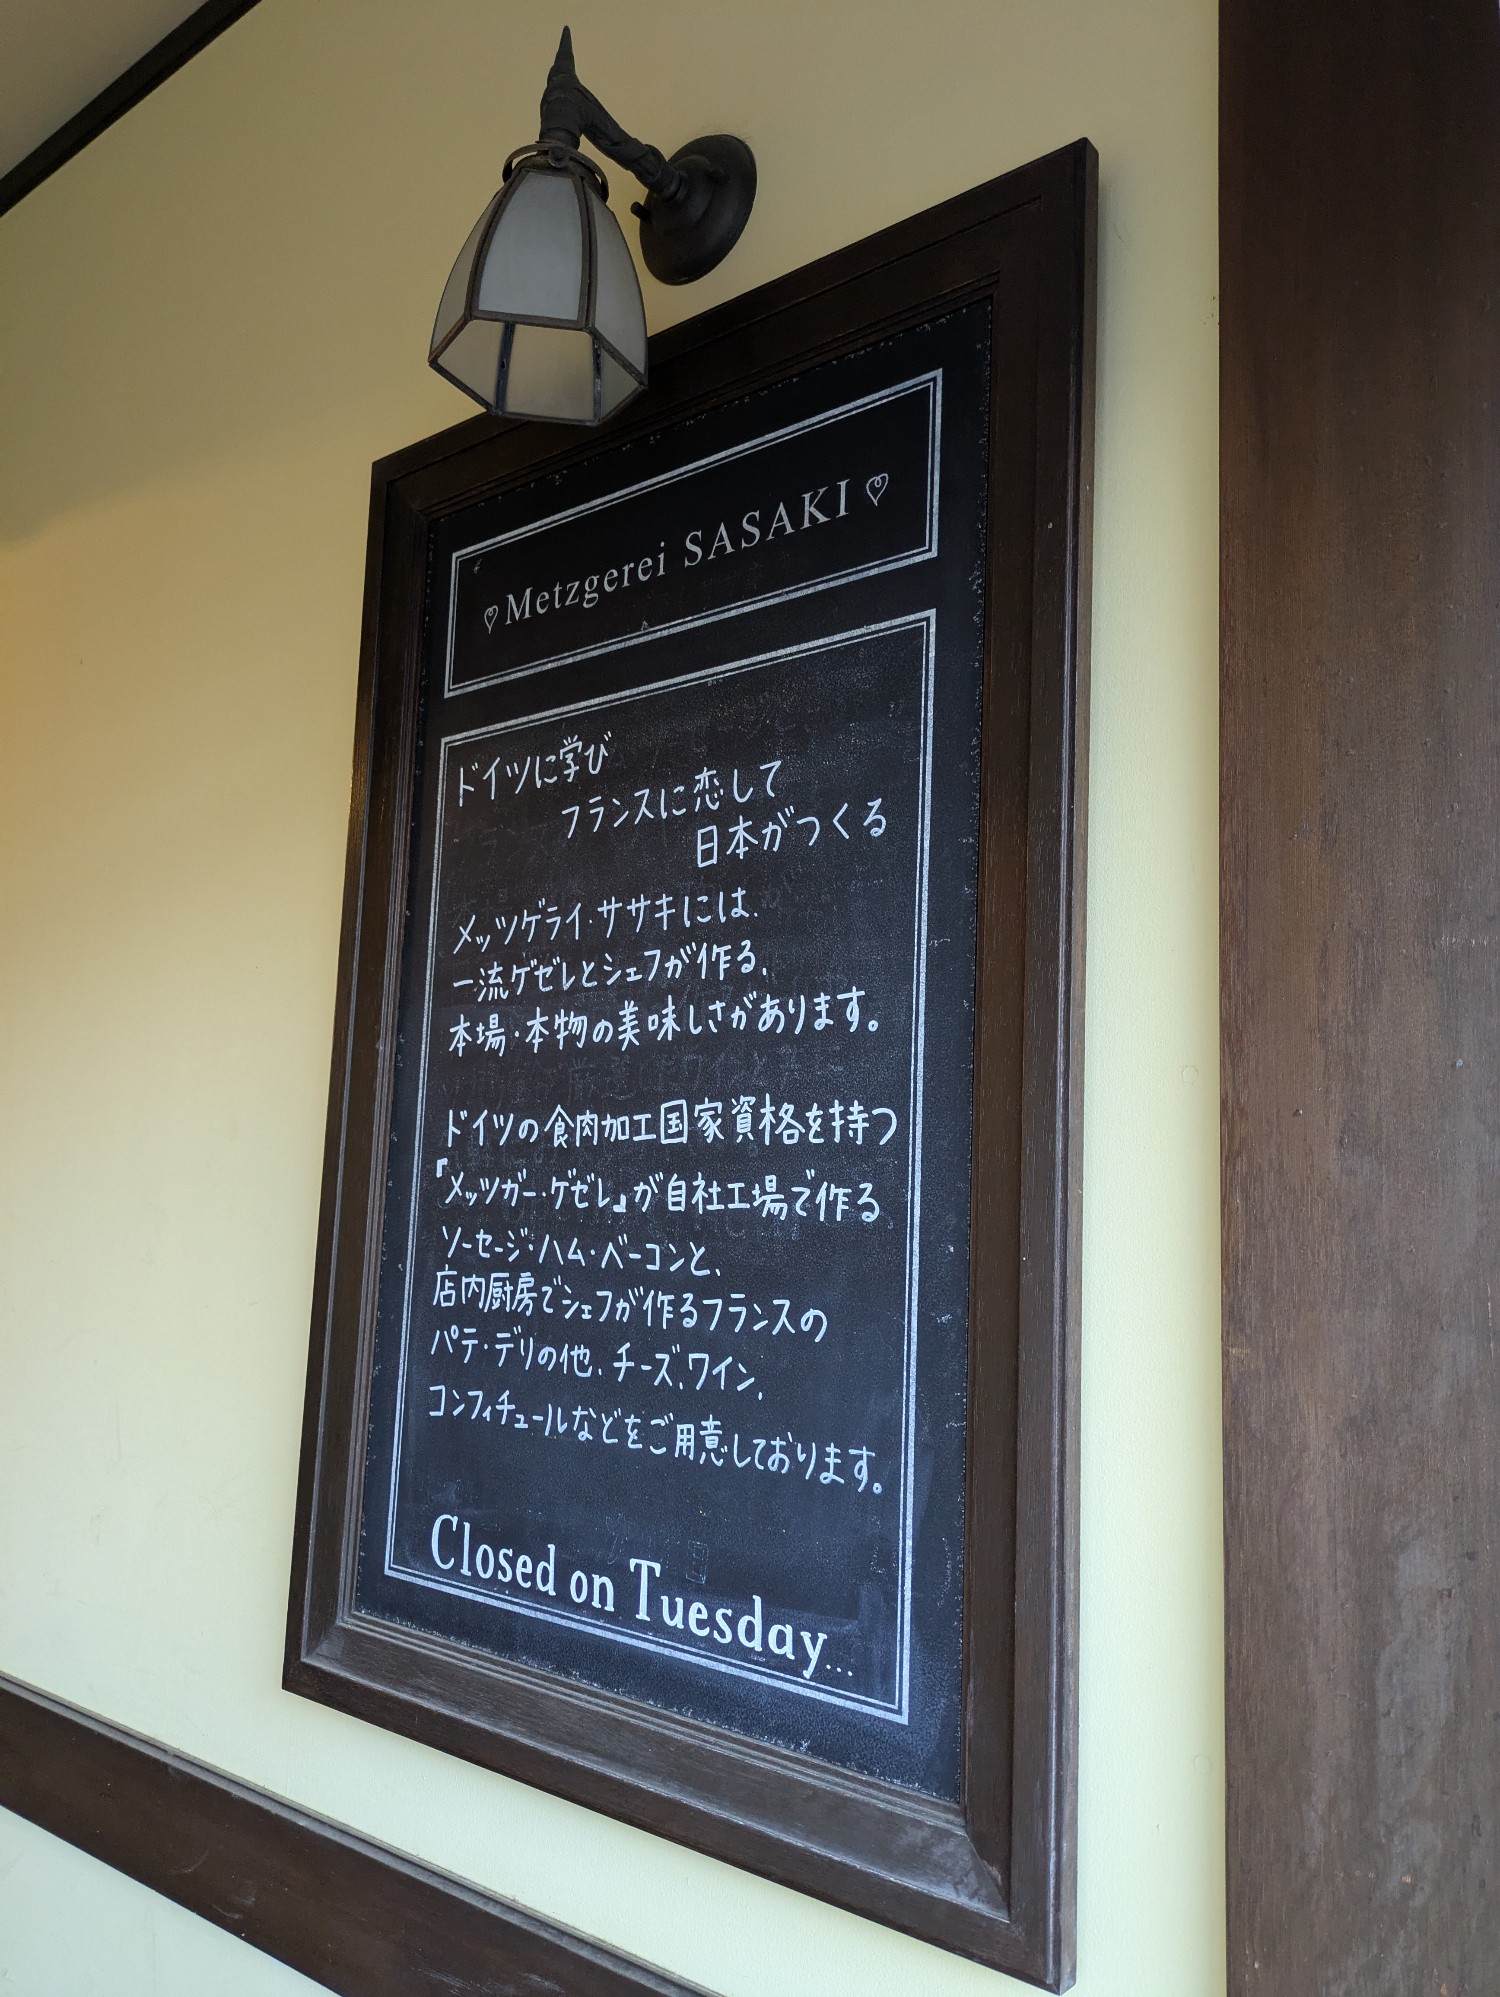 Metzgerei SASAKI
ドイツに学び
フランスに恋して
日本がつくる
メッツゲライ・ササキには、
一流ゲゼレとシェフが作る、
本場・本物の美味しさがあります。
ドイツの食肉加工国家資格を持つ
『メッツガー・ゲゼレ』が自社工場で作る
ソーセージ・ハム・ベーコンと、
店内厨房でシェフが作るフランスの
パテ・デリの他、チーズ、ワイン、
コンフィチュールなどをご用意しております。
Closed on Tuesday...